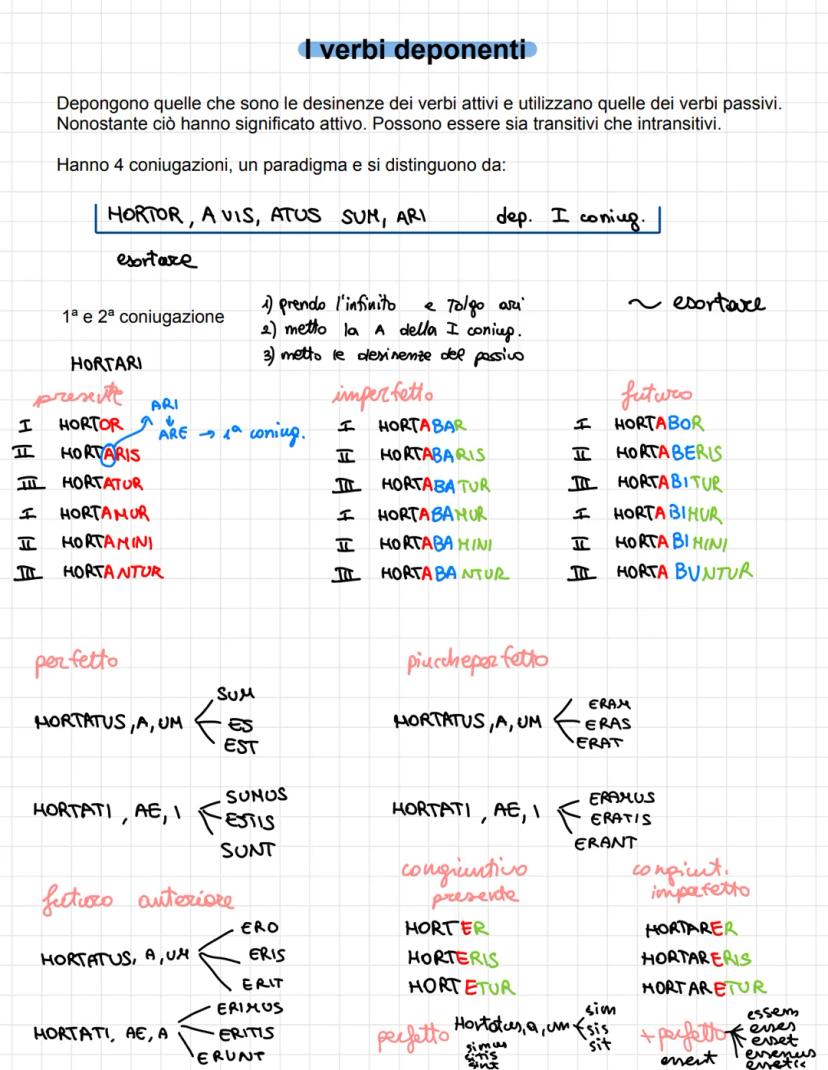 I verbi deponenti
Depongono quelle che sono le desinenze dei verbi attivi e utilizzano quelle dei verbi passivi.
Nonostante ciò hanno significato attivo. Possono essere sia transitivi che intransitivi.
Hanno 4 coniugazioni, un paradigma e si distinguono da:
HORTOR, A VIS, ATUS SUM, ARI dep. I coniug.
esortare
1ª e 2ª coniugazione
1) prendo l'infinito e Tolgo ari
2) metto la A della I coniug.
3) metto le desinenze del passivo
~ esortare
HORTARI
presente
ARI
ARE → 1ª coniug.
I HORTOR
II HORTARIS
III HORTATUR
I HORTAMUR
II HORTAMINI
III HORTANTUR
imperfetto
I HORTABAR
II HORTABARIS
III HORTABATUR
I HORTABAMUR
II HORTABAMINI
III HORTABANTUR
futuro
I HORTABOR
II HORTABERIS
III HORTABITUR
I HORTABIMUR
II HORTABIMINI
III HORTABUNTUR
perfetto
HORTATUS, A, UM
SUM
ES
EST
HORTATI, AE, I
SUMUS
ESTIS
SUNT
piuccheperfetto
HORTATUS, A, UM
ERAM
ERAS
ERAT
HORTATI, AE, I
ERAMUS
ERATIS
ERANT
futuro anteriore
HORTATUS, A, UM
ERO
ERIS
ERIT
HORTATI, AE, A
ERIMUS
ERITIS
ERUNT
congiuntivo
presente
HORTER
HORTERIS
HORTETUR
congiunt.
imperfetto
HORTARER
HORTARERIS
HORTARETUR
perfetto Hortatus, a, um
sim
sis
sit
simus
sitis
sint
+ perfetto
essem
esses
esset
essemus
essetis
essent